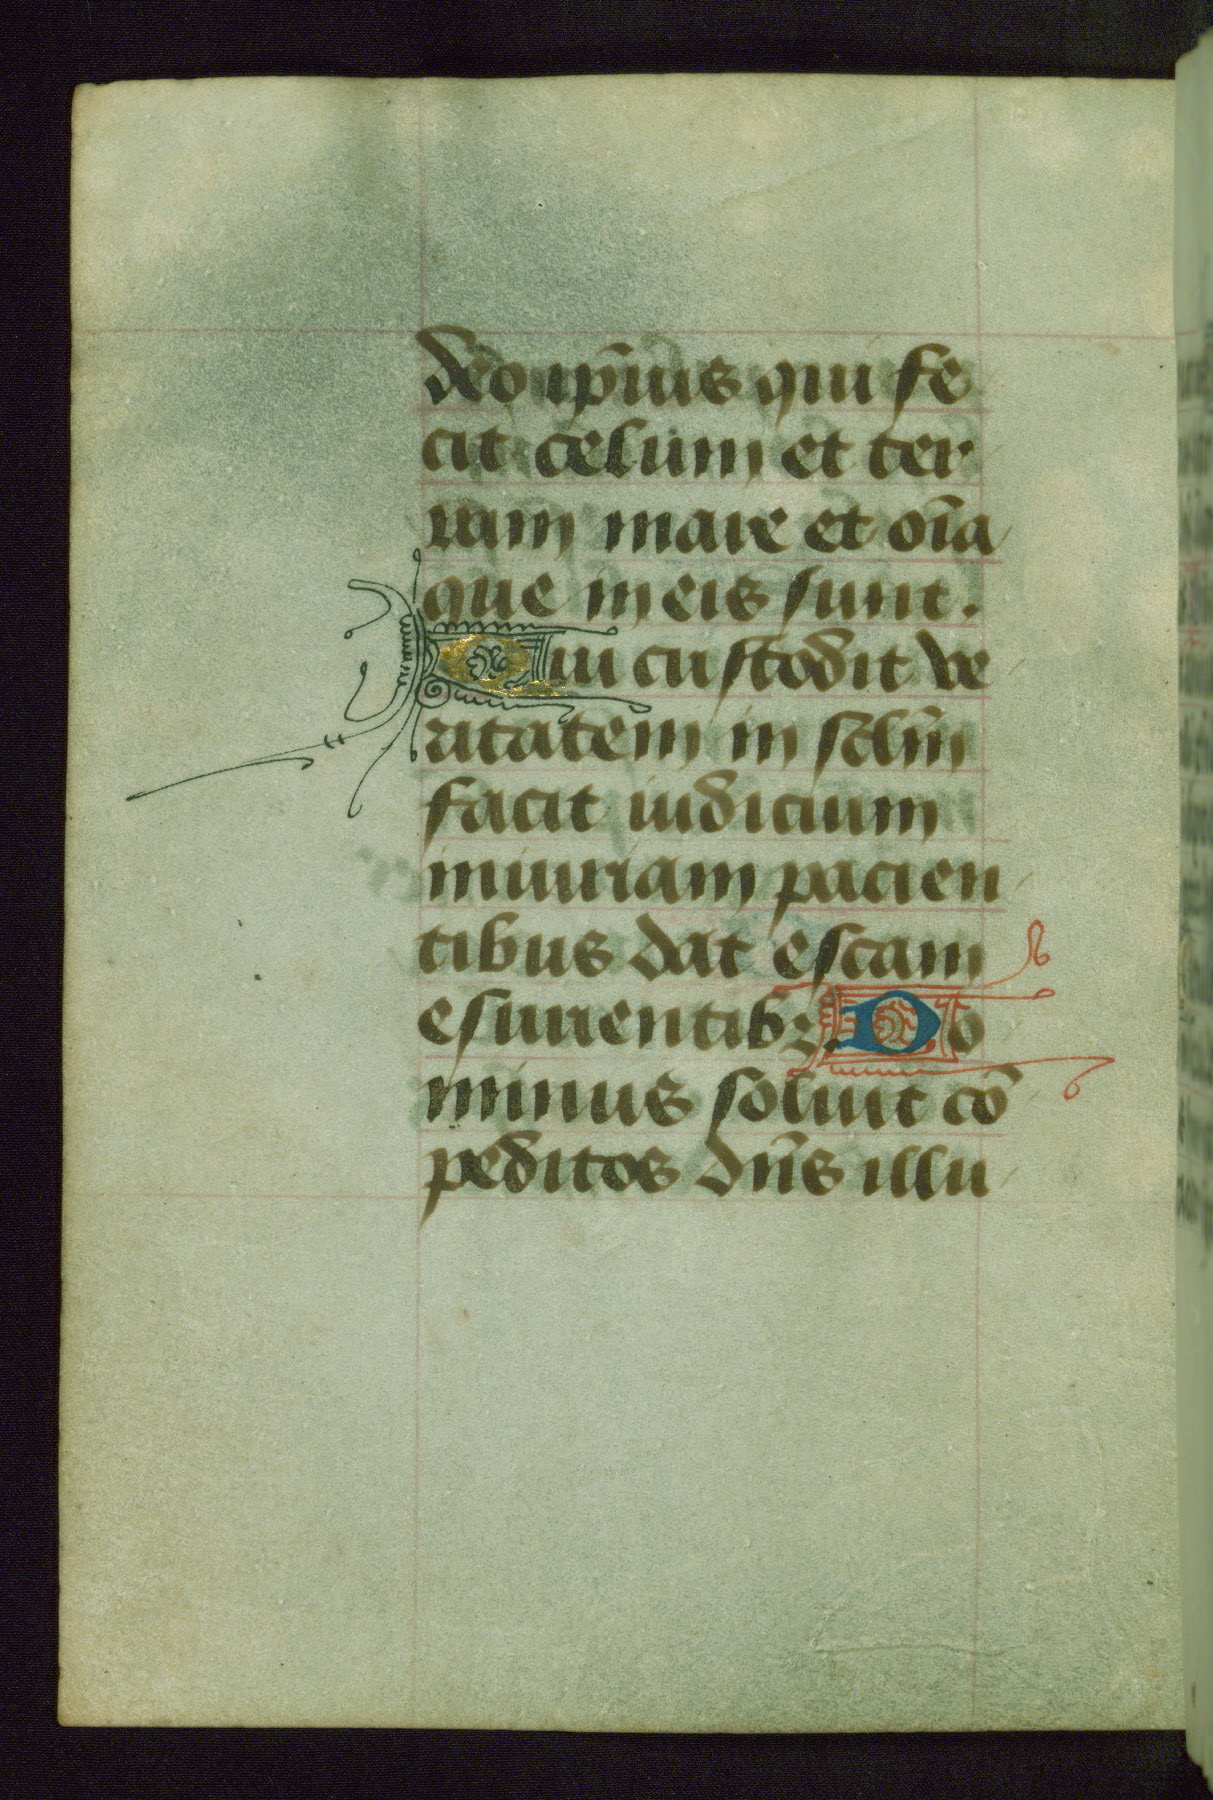 deo ip̄ius qui fe
cit celum et ter
ram mare et oīa
que in eis sunt.
Qui custodit ve
ritatem in sclm̄
facit iudicium
iniuriam pacien
tibus dat escam
esurientibꝫ. Do
minus soluit cō
peditos dn̄s illu